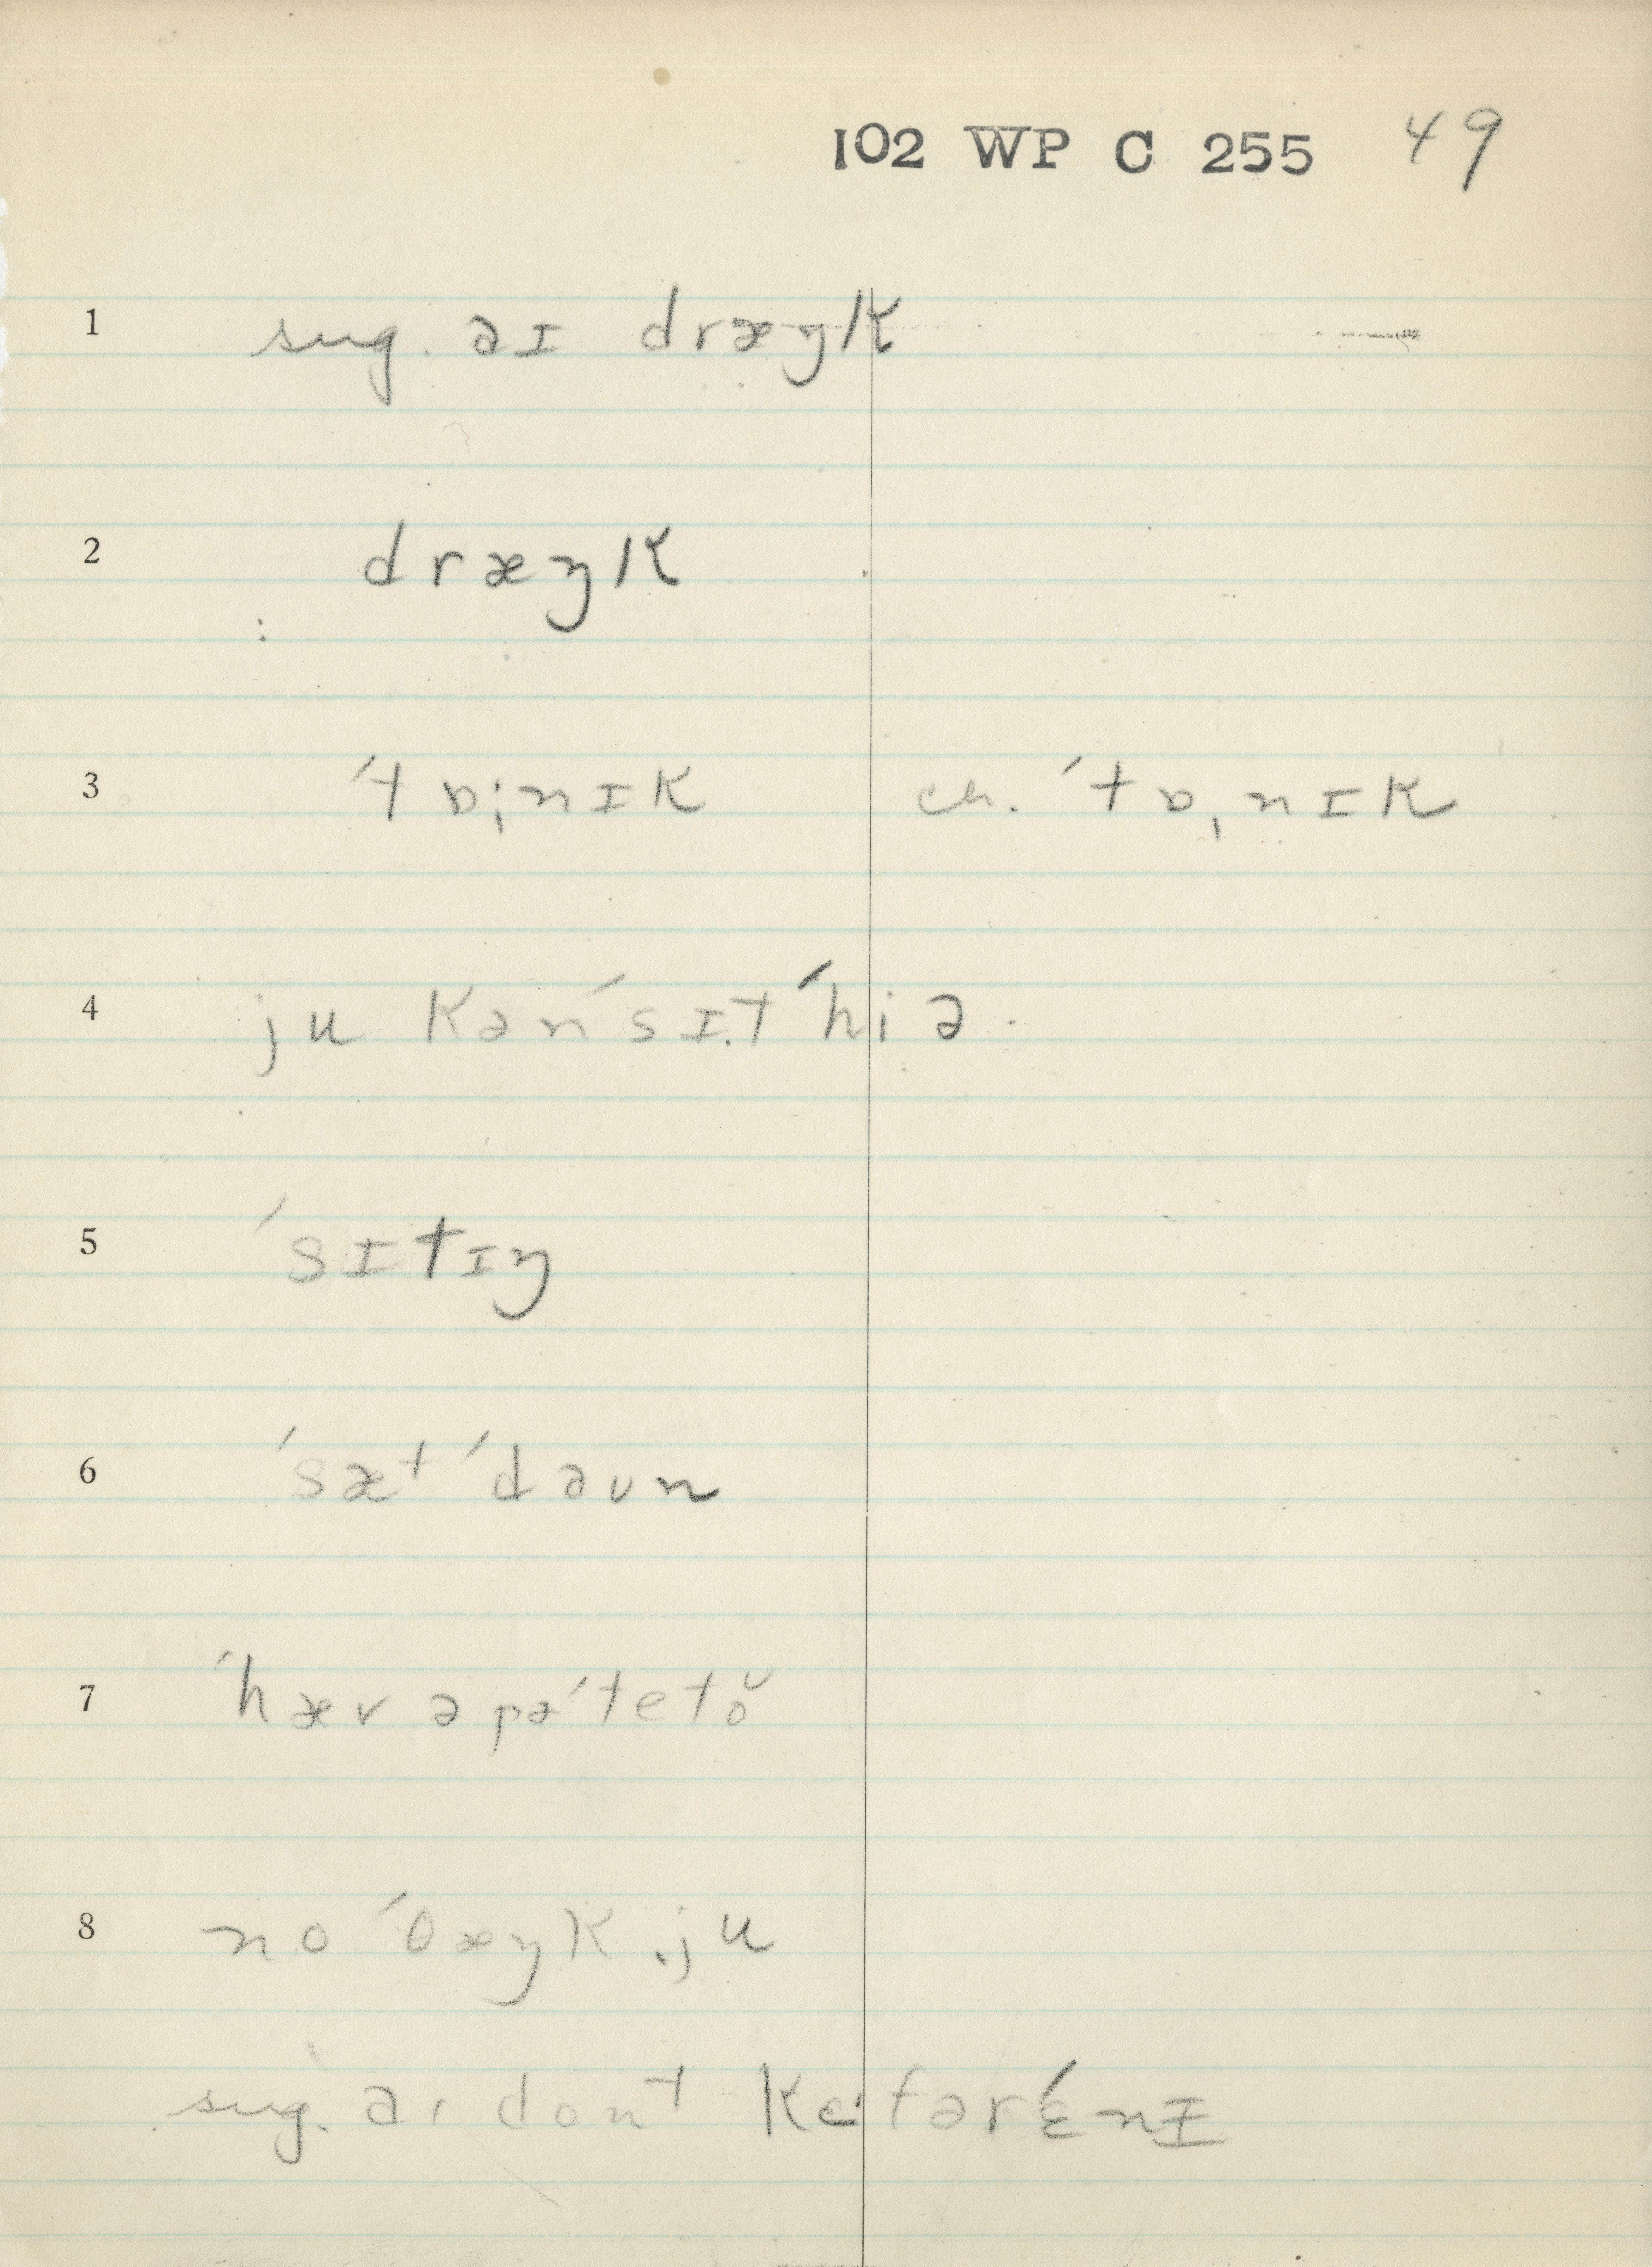 102 WP C 255 49
1 sug. aɪ dræŋk
2 dræŋk
3 ˈtɒ̩nɪk ch. ˈtɒ̩nɪk
4 ju kən ˈsɪ.t ˈhiə.
5 ˈsɪtɪŋ
6 ˈsæt ˈdaʊn
7 ˈhæv ə pəˈtetoˇ
8 no ˈθæŋk ju
sug. aɪ dont ke fər ɛ́nɪ